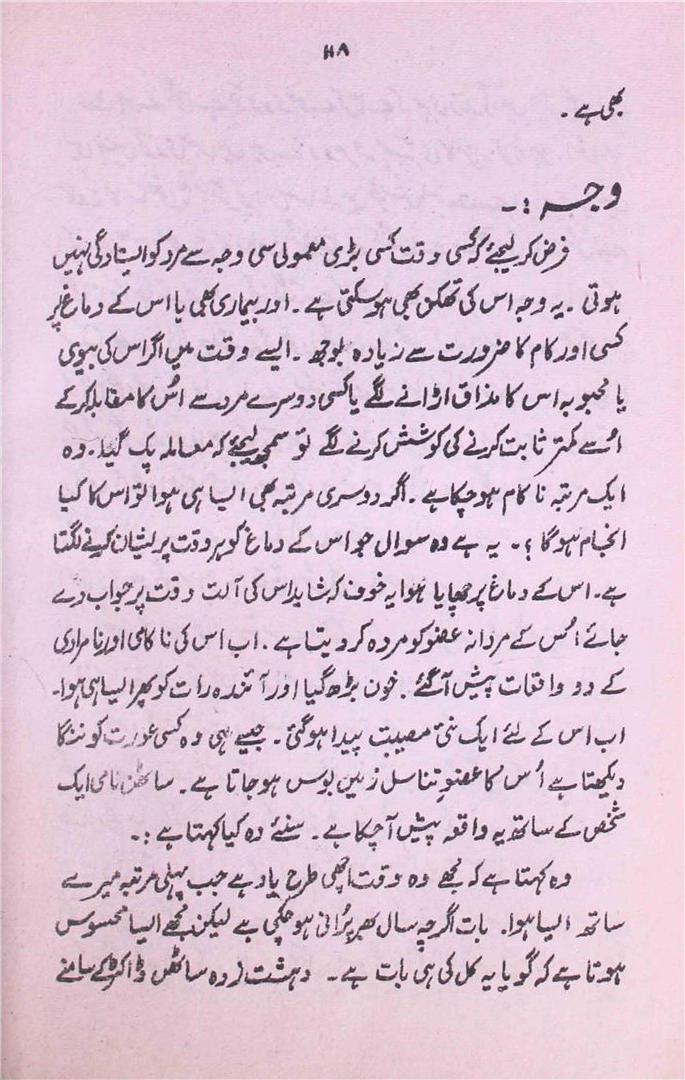 ۱۱۸
بھی ہے ۔
وجہ :۔
فرض کر لیجئے کہ کسی وقت کسی بڑی معمولی سی وجہ سے مرد کو ایستادگی نہیں
ہوتی ۔ یہ وجہ اس کی تھکن بھی ہو سکتی ہے ۔ اور بیماری بھی یا اس کے دماغ پر
کسی اور کام کا ضرورت سے زیادہ بوجھ ۔ ایسے وقت میں اگر اس کی بیوی
یا محبوبہ اس کا مذاق اڑانے لگے یا کسی دوسرے مرد سے اُس کا مقابلہ کر کے
اسے کمتر ثابت کرنے کی کوشش کرنے لگے تو سمجھ لیجئے کہ معاملہ پک گیا ۔ وہ
ایک مرتبہ ناکام ہو چکا ہے ۔ اگر دوسری مرتبہ بھی ایسا ہی ہوا تو اس کا کیا
انجام ہو گا ؟ ۔ یہ ہے وہ سوال جو اس کے دماغ کو ہر وقت پریشان کرنے لگتا
ہے ۔ اس کے دماغ پر چھایا ہوا یہ خوف کہ شاید اس کی آلت وقت پر جواب دے
جائے اُس کے مردانہ عضو کو مردہ کر دیتا ہے ۔ اب اس کی ناکامی اور نامرادی
کے دو واقعات پیش آ گئے ۔ خون بڑھ گیا اور آئندہ رات کو پھر ایسا ہی ہوا ۔
اب اس کے لئے ایک نئی مصیبت پیدا ہو گئی ۔ جیسے ہی وہ کسی عورت کو ننگا
دیکھتا ہے اُس کا عضو تناسل زمین بوس ہو جاتا ہے ۔ سائمن نامی ایک
شخص کے ساتھ یہ واقعہ پیش آ چکا ہے ۔ سنئے وہ کیا کہتا ہے :۔
وہ کہتا ہے کہ مجھے وہ وقت اچھی طرح یاد ہے جب پہلی مرتبہ میرے
ساتھ ایسا ہوا ۔ بات اگرچہ سال بھر پُرانی ہو چکی ہے لیکن مجھے ایسا محسوس
ہوتا ہے کہ گویا یہ کل کی ہی بات ہے ۔ دہشت زدہ سائمن ڈاکٹر کے سامنے